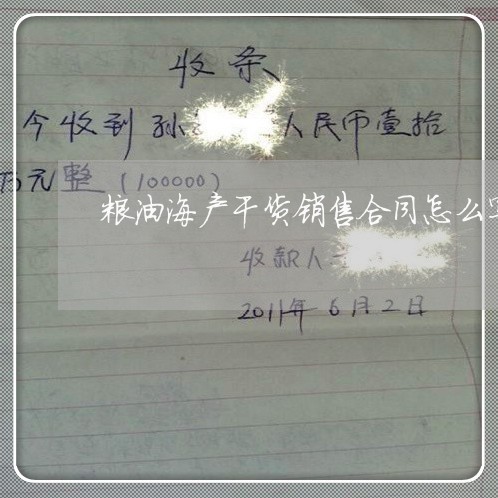 收条
今收到孙 人民币壹拾
万元整（100000）
粮油海产干货销售合同怎么写
收款人
2011年6月2日